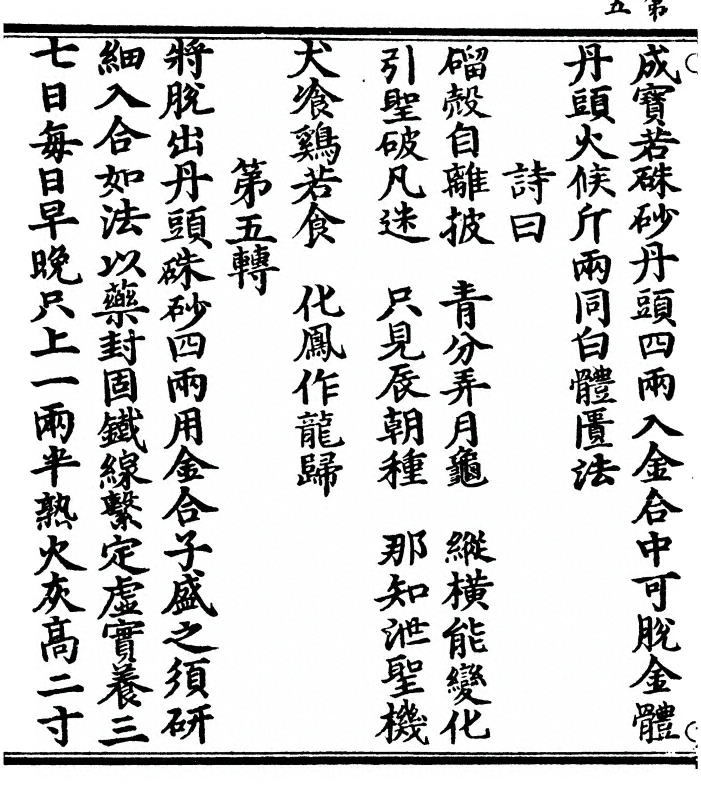 第五
成寶若硃砂丹頭四兩入金合中可脫金體
丹頭火候斤兩同白體匱法
詩曰
磂殼自離披　青分弄月龜　縱橫能變化
引聖破凡迷　只見辰朝種　那知泄聖機
犬飡鷄若食　化鳳作龍歸
第五轉
將脫出丹頭硃砂四兩用金合子盛之須研
細入合如法以藥封固鐵線繫定虛實養三
七日每日早晚只上一兩半熟火灰高二寸